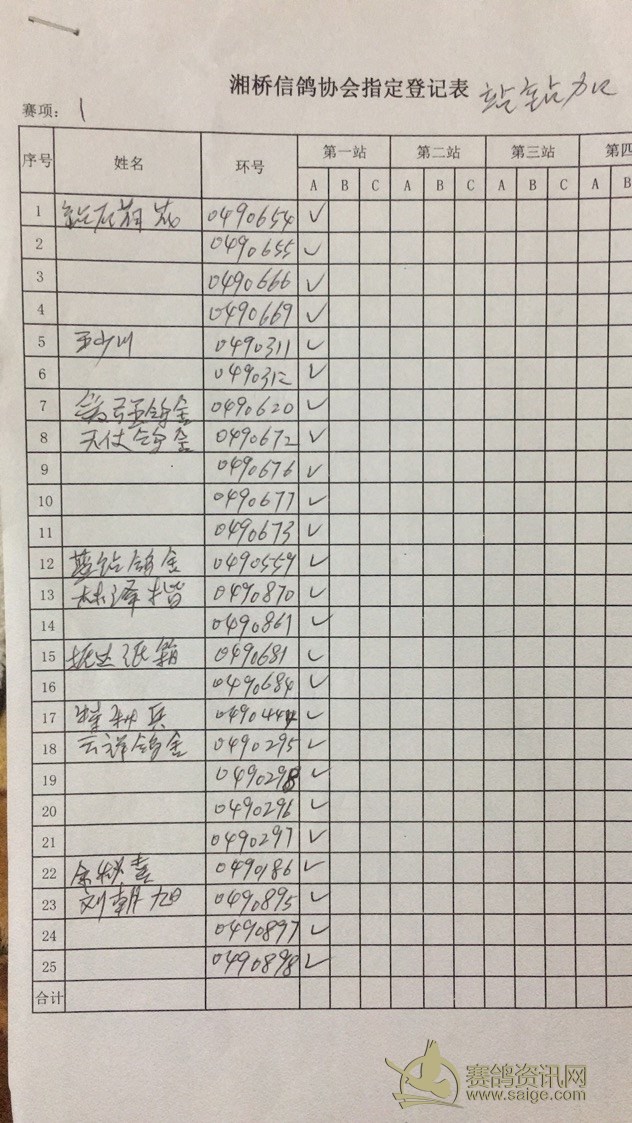 湘桥信鸽协会指定登记表 站站加
赛项： 1
序号 姓名 环号 第一站 第二站 第三站 第四
A B C A B C A B C A B
1 0490654 ✓
2 0490655 ✓
3 0490666 ✓
4 0490669 ✓
5 王少川 0490311 ✓
6 0490312 ✓
7 0490620 ✓
8 天仗鸽舍 0490672 ✓
9 0490676 ✓
10 0490677 ✓
11 0490673 ✓
12 蓝钻鸽舍 0490559 ✓
13 林泽楷 0490870 ✓
14 0490861 ✓
15 纸箱 0490681 ✓
16 0490684 ✓
17 0490444 ✓
18 云祥鸽舍 0490295 ✓
19 0490298 ✓
20 0490296 ✓
21 0490297 ✓
22 0490186 ✓
23 刘朝旭 0490895 ✓
24 0490897 ✓
25 0490898 ✓
合计
赛鸽资讯网
www.saige.com